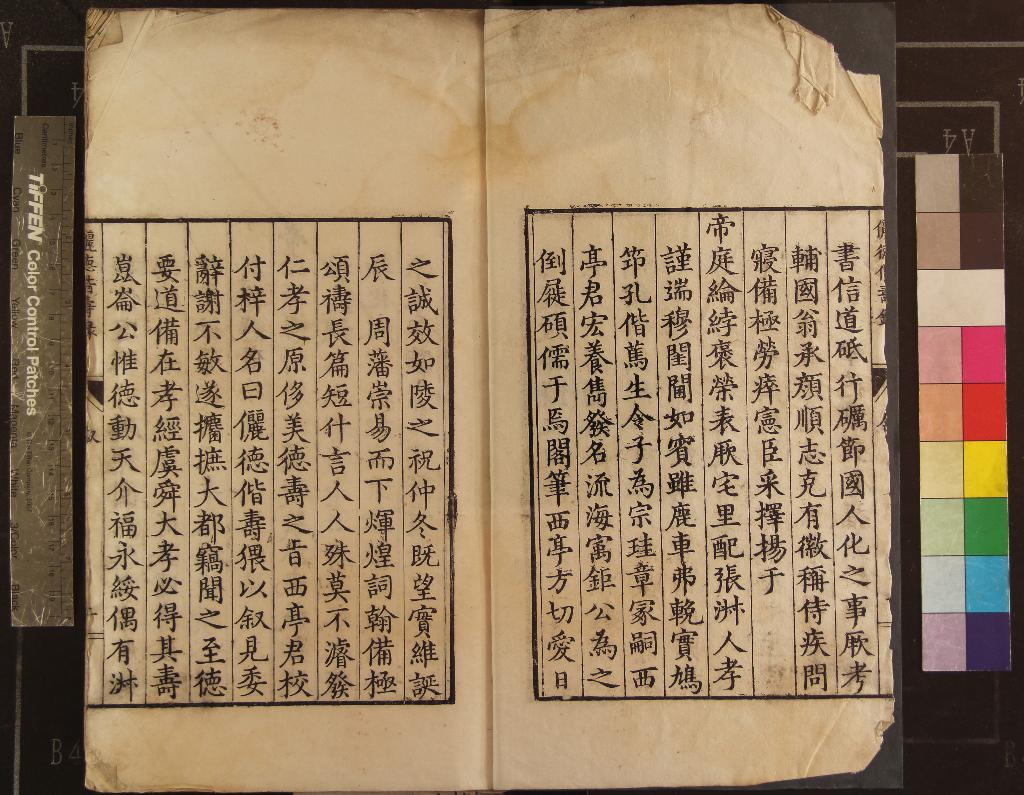 書信道砥行礪節國人化之事厥考
輔國翁承顏順志克有徽稱侍疾問
寢備極勞瘁憲臣采擇揚于
帝庭綸綍褒榮表厥宅里配張淋人孝
謹端穆閨閫如賓雖鹿車弗輓實鳩
笻孔偕篤生令子為宗珪章冢嗣西
亭君宏養雋發名流海寓鉅公為之
倒屣碩儒于焉閣筆西亭方切愛日
之誠效如陵之祝仲冬既望實維誕
辰 周藩崇易而下煇煌詞翰備極
頌禱長篇短什言人人殊莫不濬發
仁孝之原侈美德壽之旨西亭君校
付梓人名曰儷德偕壽猥以叙見委
辭謝不敏遂攟摭大都竊聞之至德
要道備在孝經虞舜大孝必得其壽
崑崙公惟德動天介福永綏偶有淋
儷德偕壽錄
TIFFEN Color Control Patches
Blue
Cyan
Green
Yellow
Red
Magenta
White
3/Color
Black
Centimetres
A4
A4
B4